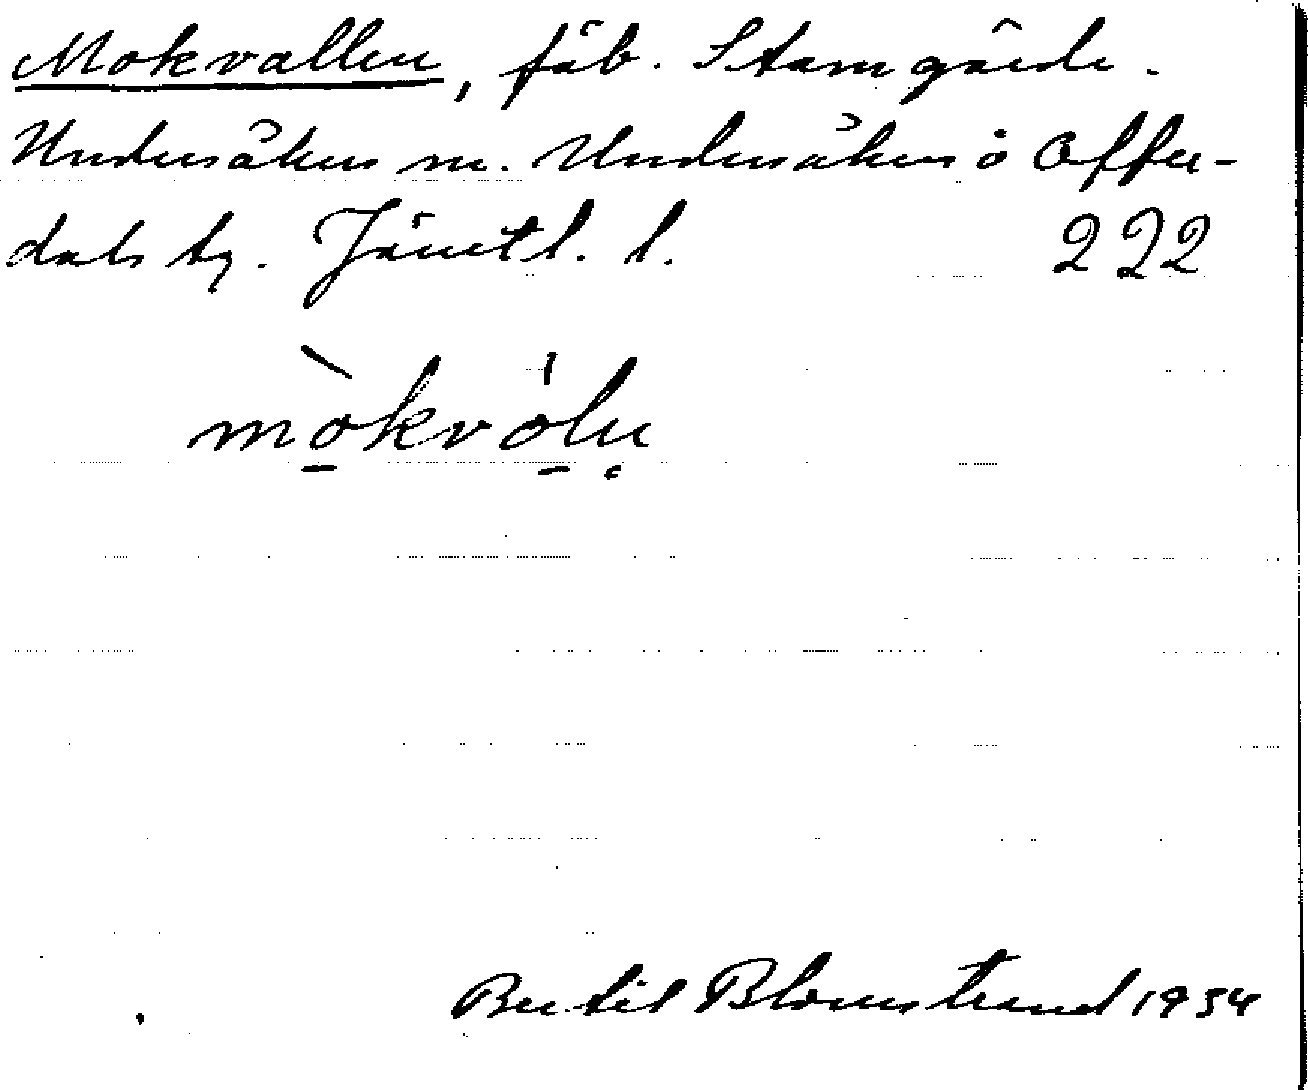 Mokvallen, fäb. Stamgärde.
Undersåkers sn. Undersåkers o Offer-
dals tg. Jämtl. l. 222
mo̱kvo̱ln
Bertil Blomstrand 1934